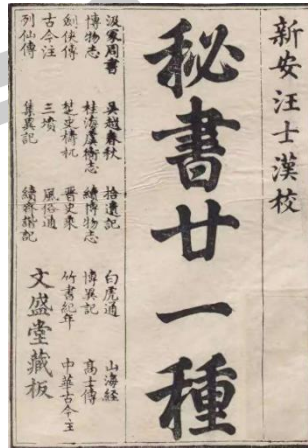 新安汪士漢校
秘書廿一種
汲冢周書 吳越春秋 拾遺記 白虎通 山海經
博物志 桂海虞衡志 續博物志 博異記 高士傳
劍俠傳 楚史檮杌 晉史乘 竹書紀年 中華古今注
古今注 三墳 風俗通
列仙傳 集異記 續齊諧記
文盛堂藏板